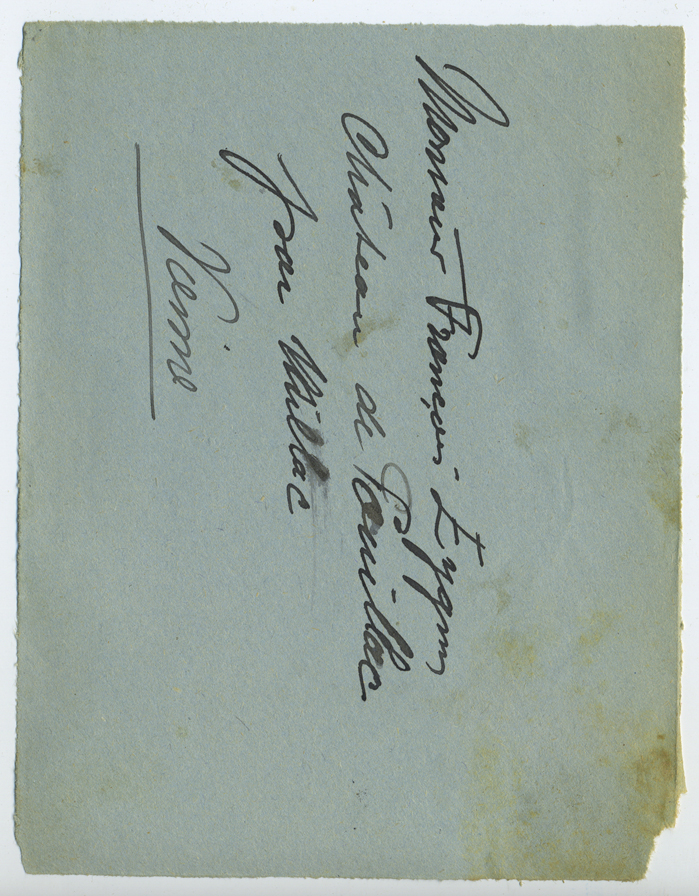 Monsieur François Eygun
Château de Pouillac
par Millac
Vienne